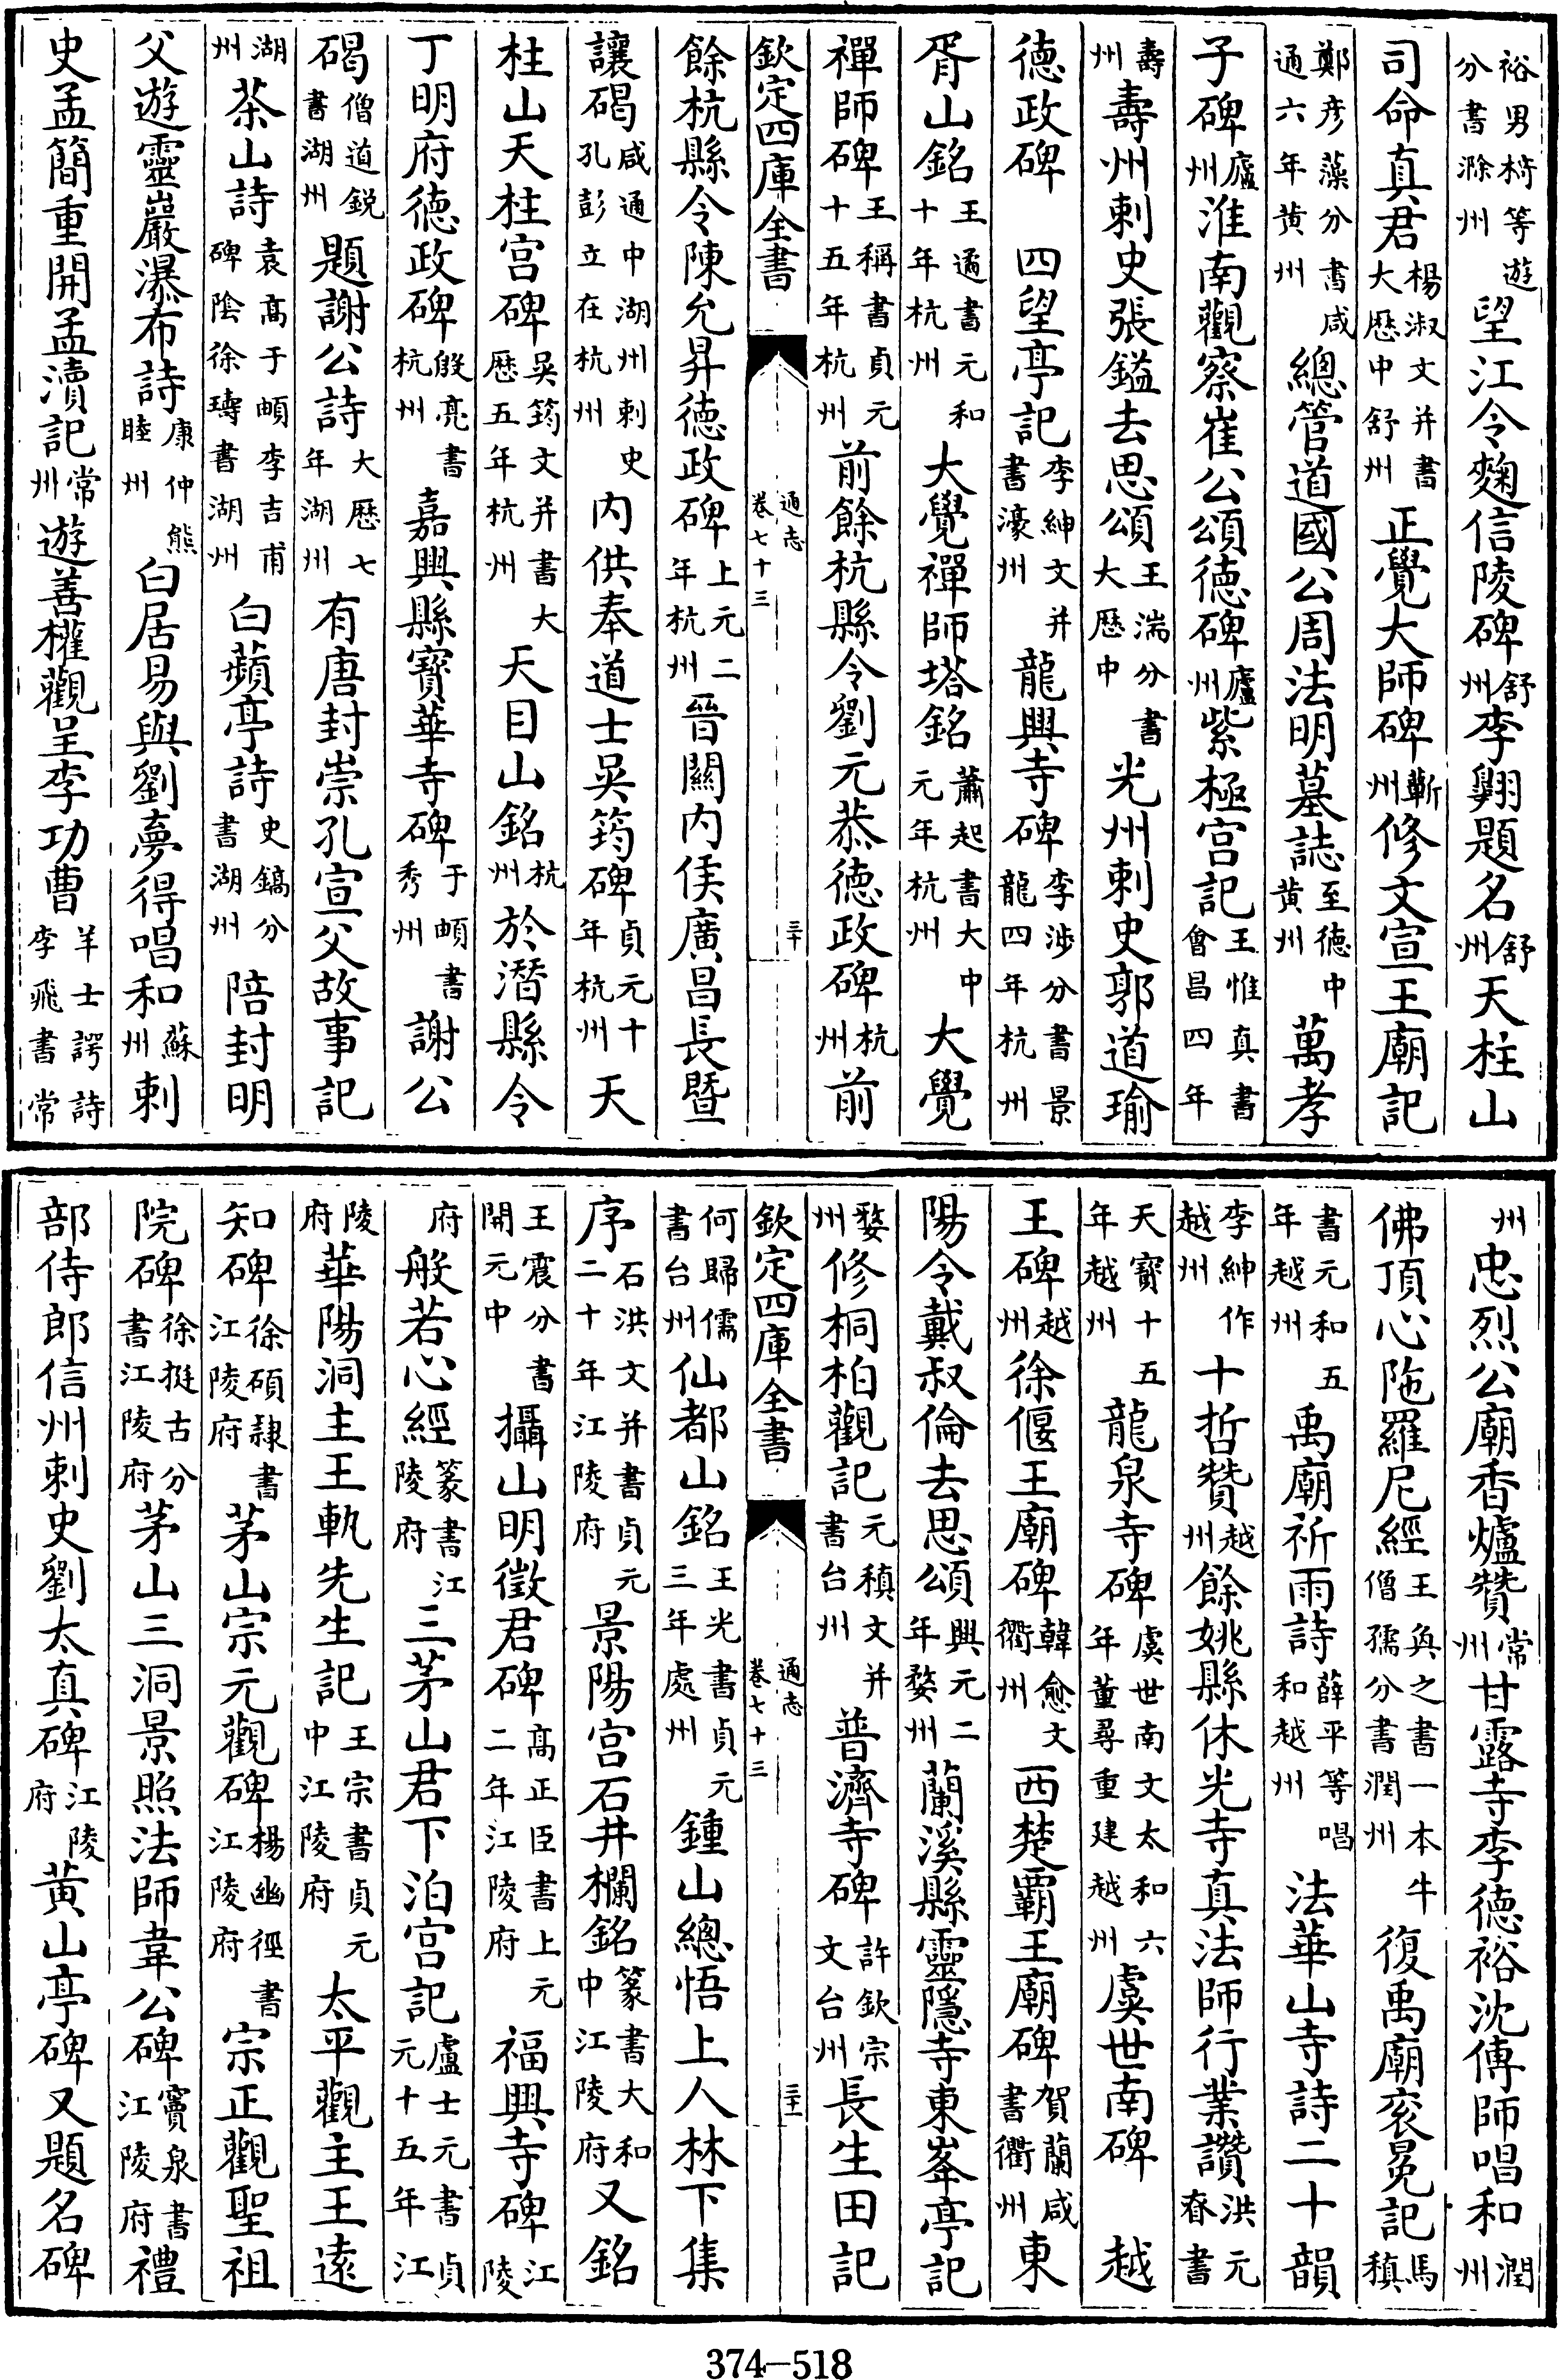 裕男㨔等遊分書滁州望江令麴信陵碑舒州李翺題名舒州天柱山
司命真君楊淑文并書大歴中舒州正覺大師碑蘄州修文宣王廟記
鄭彦藻分書咸通六年黄州總管道國公周法明墓誌至德中黄州萬孝
子碑廬州淮南觀察崔公頌德碑廬州紫極宫記王惟真書會昌四年
壽州壽州刺史張鎰去思頌王湍分書大歴中光州刺史郭道瑜
德政碑四望亭記李紳文并書濠州龍興寺碑李涉分書景龍四年杭州
胥山銘王遹書元和十年杭州大覺禪師塔銘蕭起書大中元年杭州大覺
禪師碑王稱書貞元十五年杭州前餘杭縣令劉元恭德政碑杭州前
欽定四庫全書
通志卷七十三
三十
餘杭縣令陳允昇德政碑上元二年杭州晉關内侯廣昌長暨
讓碣咸通中湖州刺史孔彭立在杭州内供奉道士吳筠碑貞元十年杭州天
柱山天柱宫碑吳筠文并書大歴五年杭州天目山銘杭州於潛縣令
丁明府德政碑殷亮書杭州嘉興縣寳華寺碑于頔書秀州謝公
碣僧道鋭書湖州題謝公詩大歴七年湖州有唐封崇孔宣父故事記
湖州茶山詩袁髙于頔李吉甫碑隂徐璹書湖州白蘋亭詩史鎬分書湖州陪封明
父遊靈巖瀑布詩康仲熊睦州白居易與劉夢得唱和蘇州刺
史孟簡重開孟瀆記常州遊善權觀呈李功曹羊士諤詩李飛書常
州忠烈公廟香爐贊常州甘露寺李德裕沈傅師唱和潤州
佛頂心陁羅尼經王奐之書一本牛僧孺分書潤州復禹廟衮冕記馬稹
書元和五年越州禹廟祈雨詩薛平等唱和越州法華山寺詩二十韻
李紳作越州十哲贊越州餘姚縣休光寺真法師行業讚洪元眘書
天寳十五年越州龍泉寺碑虞世南文太和六年董尋重建越州虞世南碑越
王碑越州徐偃王廟碑韓愈文衢州西楚霸王廟碑賀蘭咸書衢州東
陽令戴叔倫去思頌興元二年婺州蘭溪縣靈隱寺東峯亭記
婺州修桐柏觀記元稹文并書台州普濟寺碑許欽宗文台州長生田記
欽定四庫全書
通志卷七十三
三十一
何歸儒書台州仙都山銘王光書貞元三年處州鍾山總悟上人林下集
序石洪文并書貞元二十年江陵府景陽宫石井欄銘篆書大和中江陵府又銘
王震分書開元中攝山明徵君碑髙正臣書上元二年江陵府福興寺碑江陵
府般若心經篆書江陵府三茅山君下泊宫記盧士元書貞元十五年江
陵府華陽洞主王軌先生記王宗書貞元中江陵府太平觀主王逺
知碑徐碩隷書江陵府茅山宗元觀碑楊幽徑書江陵府宗正觀聖祖
院碑徐挺古分書江陵府茅山三洞景照法師韋公碑竇泉書江陵府禮
部侍郎信州刺史劉太真碑江陵府黄山亭碑又題名碑
374—518